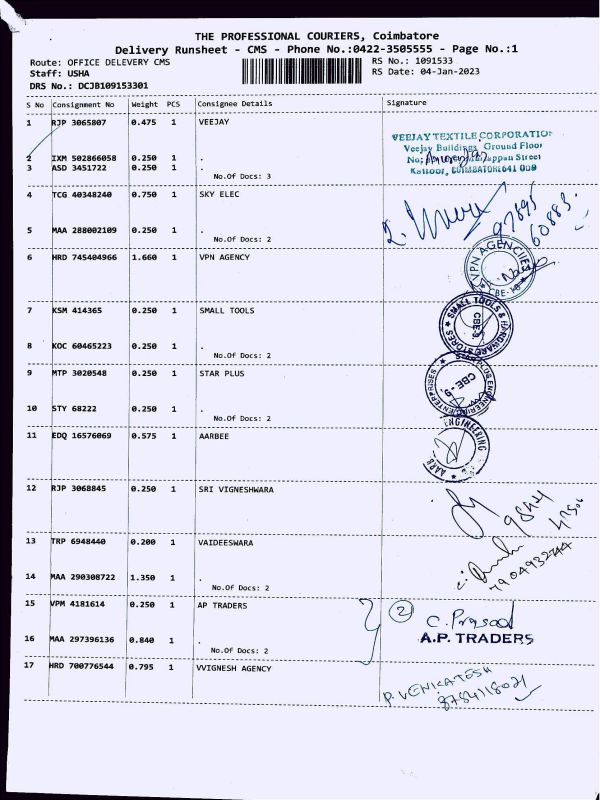 THE PROFESSIONAL COURIERS, Coimbatore
Delivery Runsheet - CMS - Phone No.:0422-3505555 - Page No.:1
Route: OFFICE DELEVERY CMS
RS No.: 1091533
Staff: USHA
RS Date: 04-Jan-2023
DRS No.: DCJB109153301
S No Consignment No Weight PCS Consignee Details Signature
1 RJP 3065807 0.475 1 VEEJAY
VEEJAY TEXTILE CORPORATION
Veejay Buildings, Ground Floor
2 IXM 502866058 0.250 1 .
No; Street
3 ASD 3451722 0.250 1 .
Kattoor, COIMBATORE 641 009
No.Of Docs: 3
4 TCG 40348240 0.750 1 SKY ELEC
97895
60883
5 MAA 288002109 0.250 1 .
No.Of Docs: 2
6 HRD 745404966 1.660 1 VPN AGENCY
VPN AGENCIES
CBE-18
7 KSM 414365 0.250 1 SMALL TOOLS
SMALL TOOLS & HARDWARE STORES
CBE-9
8 KOC 60465223 0.250 1 .
No.Of Docs: 2
9 MTP 3020548 0.250 1 STAR PLUS
CBE - 9
10 STY 68222 0.250 1 .
No.Of Docs: 2
11 EDQ 16576069 0.575 1 AARBEE
ENGINEERING
12 RJP 3068845 0.250 1 SRI VIGNESHWARA
13 TRP 6948440 0.200 1 VAIDEESWARA
7904932744
14 MAA 290308722 1.350 1 .
No.Of Docs: 2
15 VPM 4181614 0.250 1 AP TRADERS
2 C. Prasad
A.P. TRADERS
16 MAA 297396136 0.840 1 .
No.Of Docs: 2
17 HRD 700776544 0.795 1 VVIGNESH AGENCY
P. VENKATESH
8754118021